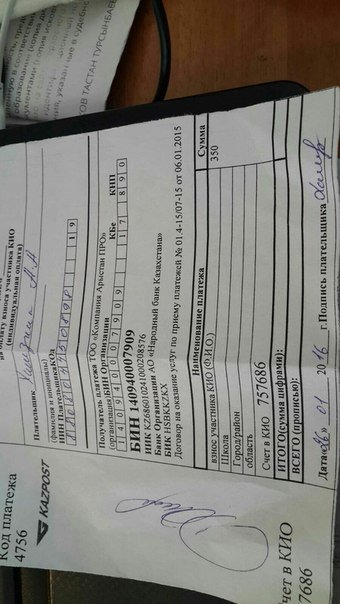 Код платежа
4756
KAZPOST
на оплату взноса участника КИО
(индивидуальная оплата)
Плательщик
(фамилия и инициалы)
ИИН Плательщика КОд
1 9
Получатель платежа ТОО «Компания Арыстан ПРО»
(организация) БИН Организации КБе КНП
1 4 0 9 4 0 0 0 7 9 0 9 1 7 8 9 0
БИН 140940007909
ИИК KZ686010241000208576
Банк Организации АО «Народный банк Казахстана»
БИК HSBKKZKX
Договор на оказание услуг по приему платежей № 01.4-15/07-15 от 06.01.2015
Наименование платежа Сумма
взнос участника КИО (Ф.И.О.) 350
Школа
Город/район
область
Счет в КИО 757686
ИТОГО(сумма цифрами):
ВСЕГО (прописью):
Дата «06» 01 2016 г. Подпись плательщика
чет в КИО
7686
ТАСТАН ТУРСЫНБАЕВ
указанные в судебно